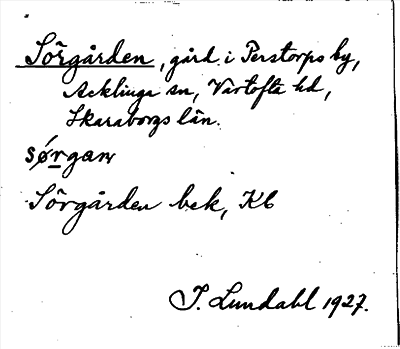 Sörgården, gård i Perstorps by,
Acklinga sn, Vartofta hd,
Skaraborgs län.
sǿrgaɳ
Sörgården bek, Kb
I. Lundahl 1927.